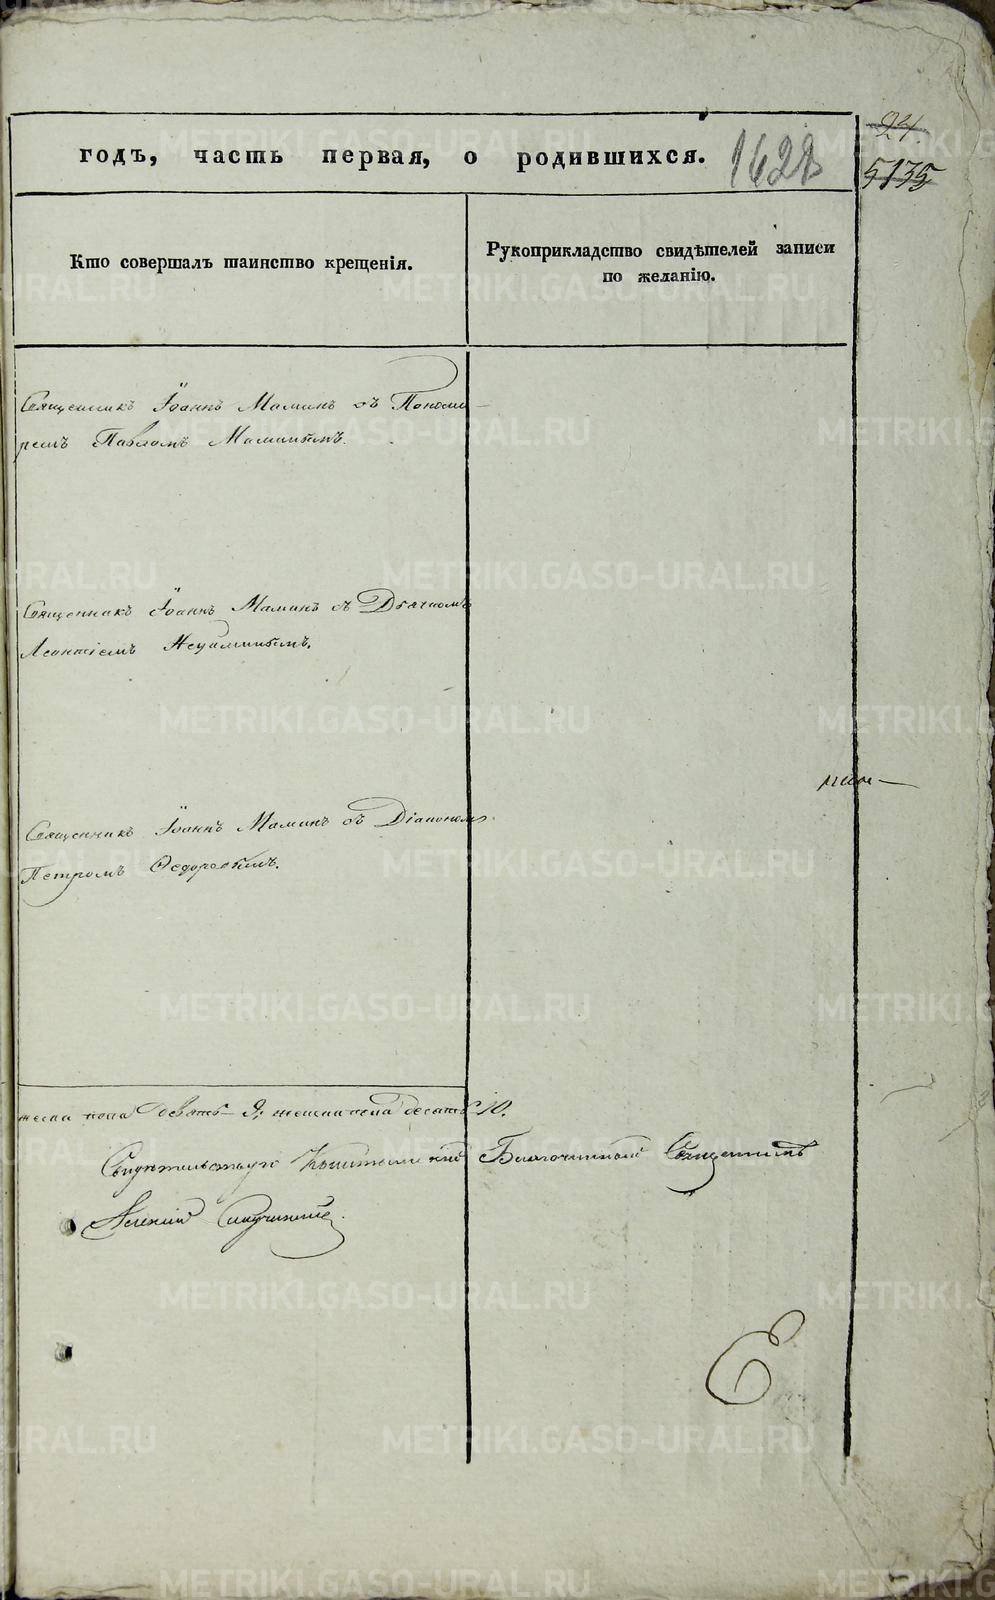 24
годъ, часть первая, о родившихся. 1628
5135
Кто совершалъ таинство крещенія.
Рукоприкладство свидѣтелей записи
по желанію.
Священникъ Іоаннъ Маминъ съ Понома-
ремъ Павломъ Маминымъ.
Священникъ Іоаннъ Маминъ съ Дьячкомъ
Леонтіемъ
Священникъ Іоаннъ Маминъ съ Діакономъ
Петромъ Ѳедоровымъ.
пола девять 9, женска пола десять 10.
Свидѣтельствую Благочинный Священникъ
METRIKI.GASO-URAL.RU